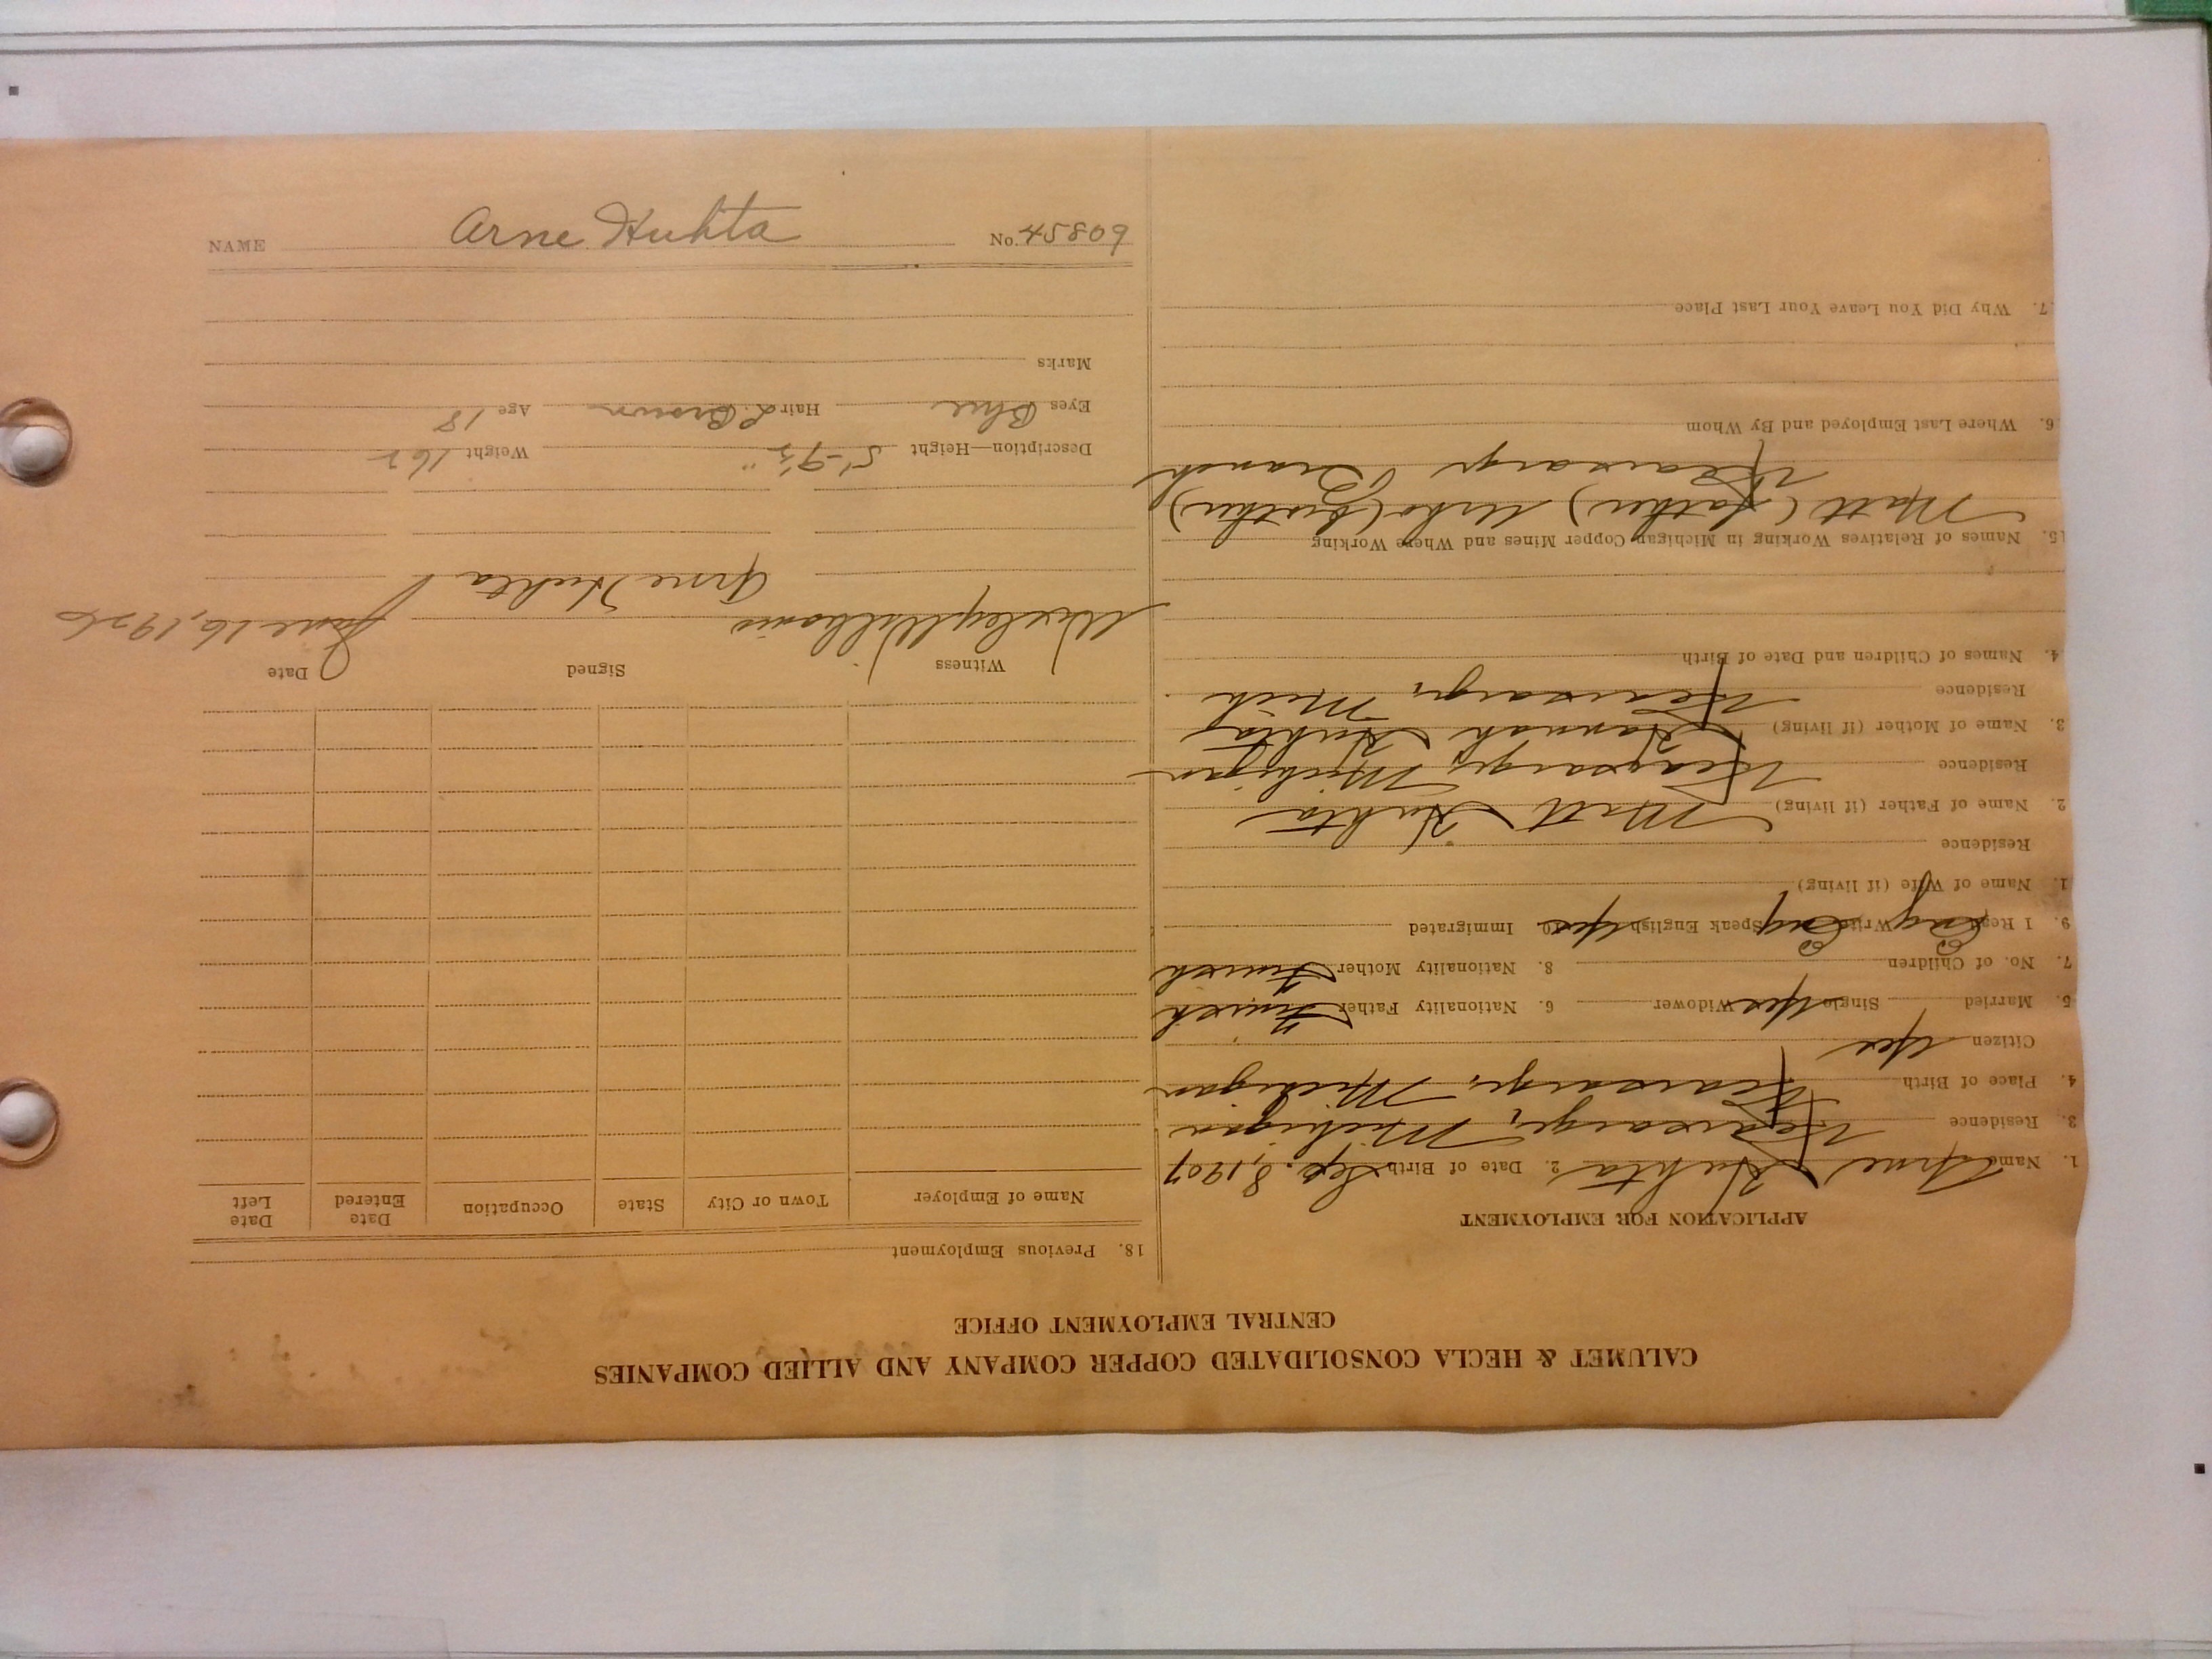 CALUMET & HECLA CONSOLIDATED COPPER COMPANY AND ALLIED COMPANIES
CENTRAL EMPLOYMENT OFFICE
APPLICATION FOR EMPLOYMENT
1. Name Arne Huhta 2. Date of Birth Sep. 8, 1907
3. Residence Kearsarge, Michigan
4. Place of Birth Kearsarge, Michigan
Citizen Yes
5. Married Single Yes Widower 6. Nationality Father Finnish
7. No. of Children 8. Nationality Mother Finnish
9. I Read Eng Write Eng Speak English Yes 10. Immigrated
1. Name of Wife (if living)
Residence
2. Name of Father (if living) Matt Huhta
Residence Kearsarge, Michigan
3. Name of Mother (if living) Hannah Huhta
Residence Kearsarge, Mich
4. Names of Children and Date of Birth
15. Names of Relatives Working in Michigan Copper Mines and Where Working
Matt (father) Urho (brother)
Kearsarge Branch
6. Where Last Employed and By Whom
7. Why Did You Leave Your Last Place
18. Previous Employment
Name of Employer Town or City State Occupation Date Entered Date Left
Witness Signed Date
Wesley Williams Arne Huhta June 16, 1926
Description—Height 5'-9½" Weight 162
Eyes Blue Hair L. Brown Age 18
Marks
NAME Arne Huhta No. 45809